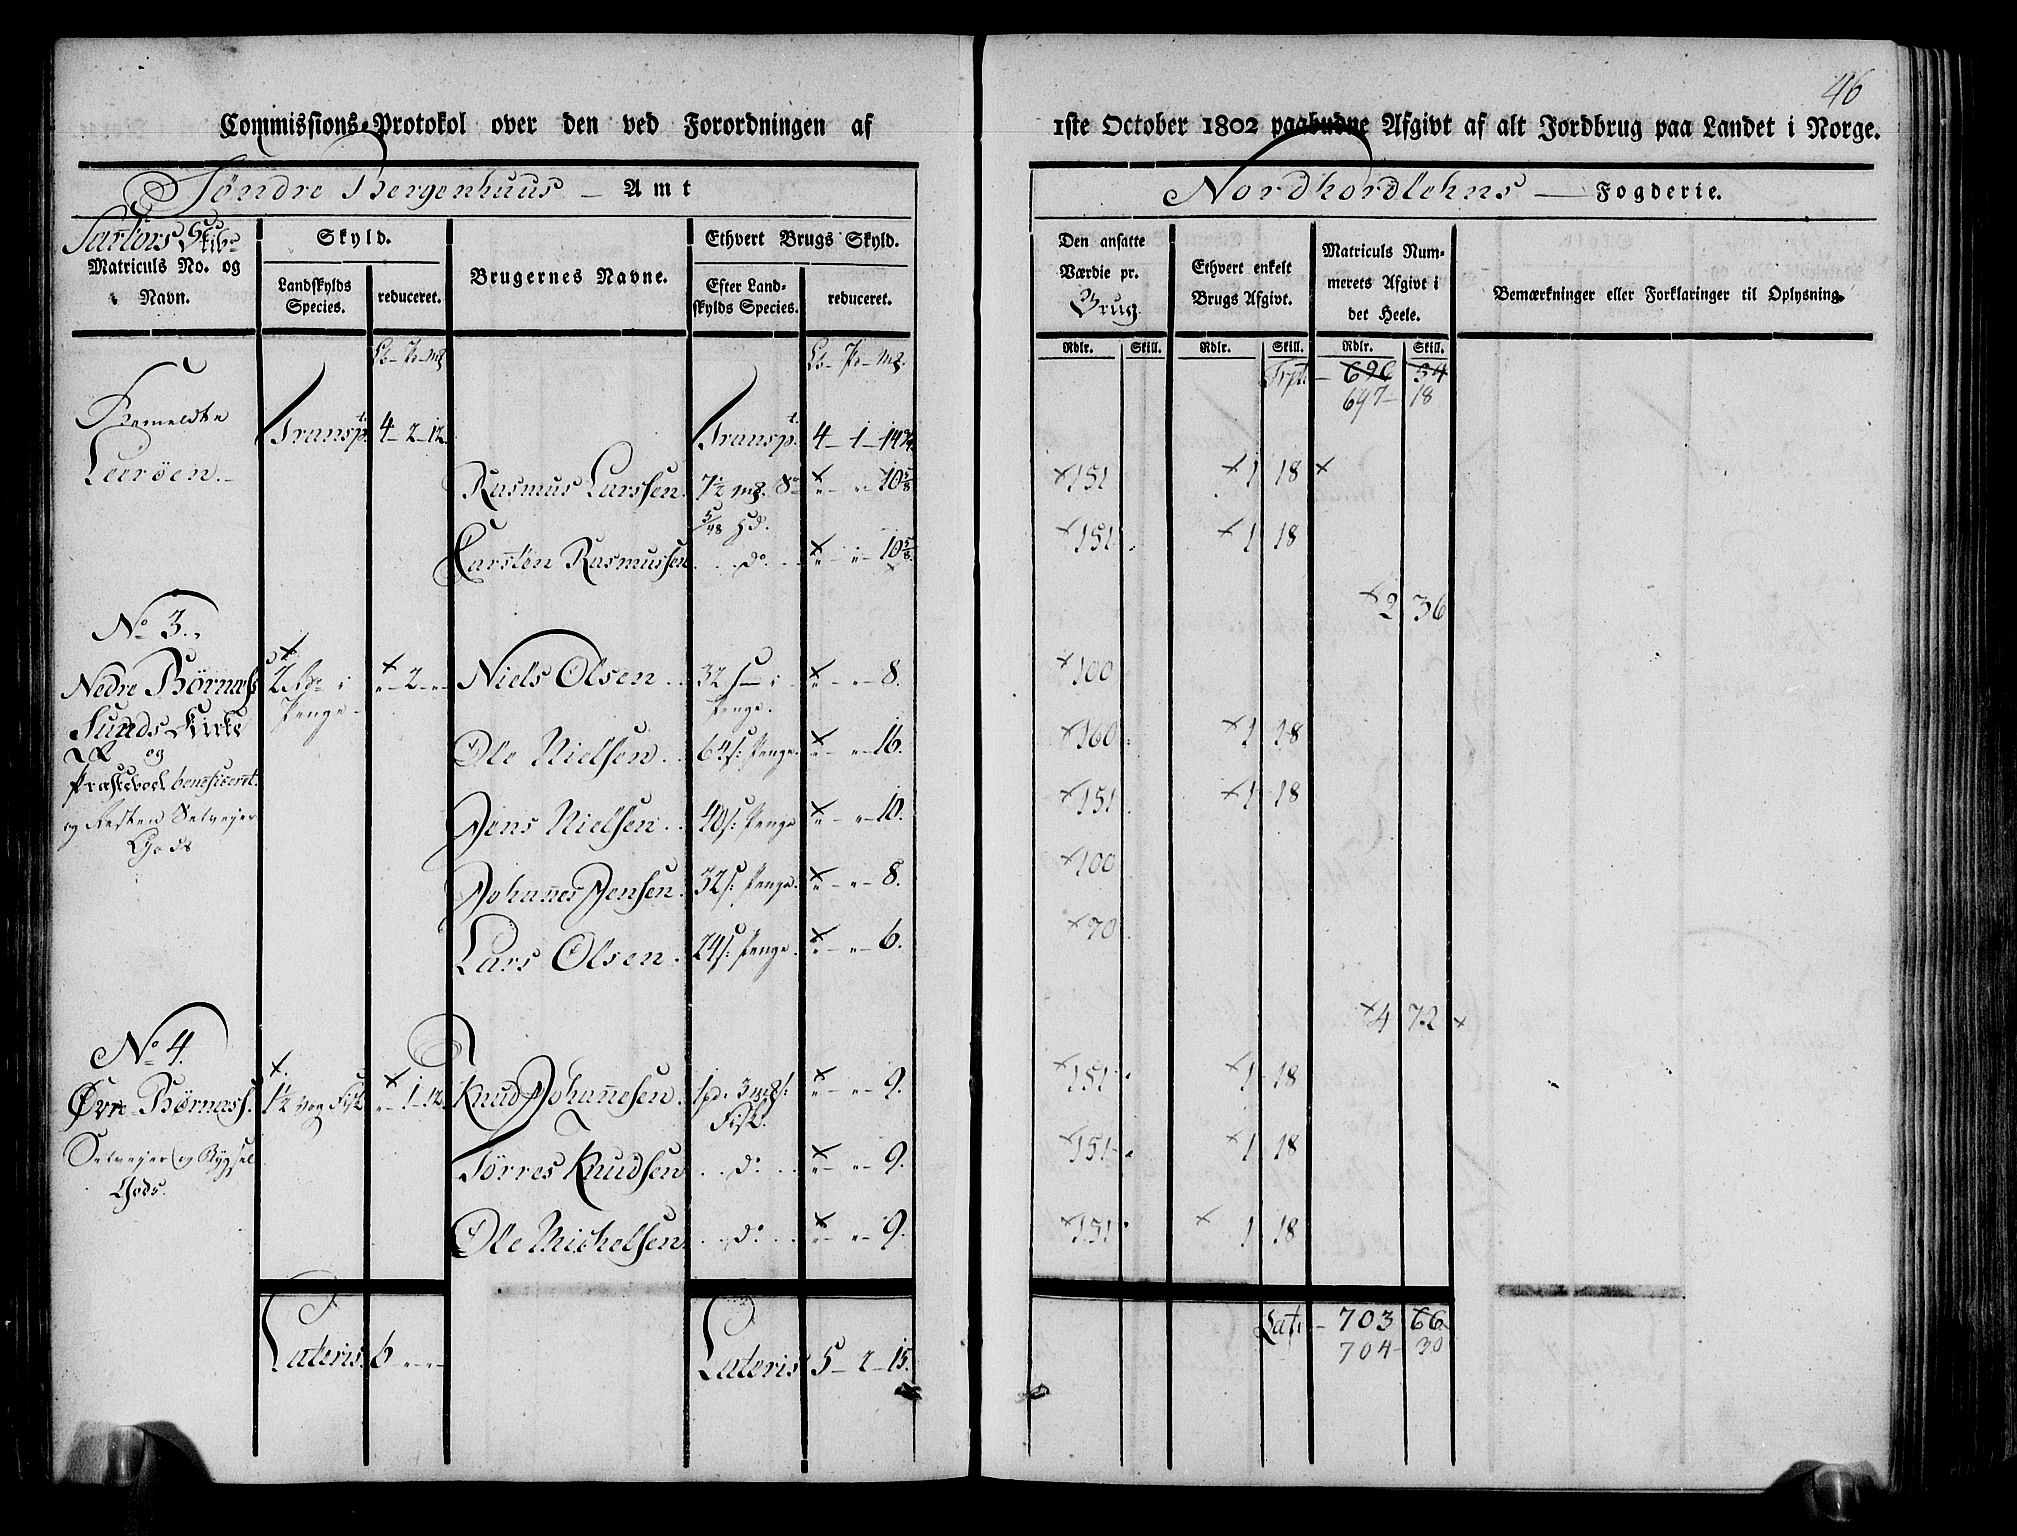 46
Commissions-Protokol over den ved Forordningen af 1ste October 1802 paabudne Afgivt af alt Jordbrug paa Landet i Norge.
Søndre Bergenhuus – Amt
Nordhordlehns – Fogderie.
Sartors Skibr
Matriculs No. og Navn.
Skyld.
Landskylds Species.
reduceret.
Brugernes Navne.
Ethvert Brugs Skyld.
Efter Landskylds Species.
reduceret.
Den ansatte Værdie pr. Brug
Ethvert enkelt Brugs Afgivt.
Matriculs Nummerets Afgivt i det Heele.
Bemærkninger eller Forklaringer til Oplysning.
Rdlr. Skill. Rdlr. Skill. Rdlr. Skill.
Trpt – 696 54
697 – 18
Bemeldte Transpt. 4 – 2 – 12 Transpt. 4 – 1 –
Leerøen. –
Rasmus Larssen. 7½ mg. " – " – 10 5/8 × 151 × 1 18 ×
Carsten Rasmussen . . do . . " – " – 10 5/8 × 151 × 1 18
× 2 36
No 3.
Nedre Børnæs 2 i Penge – " – 2 – " Niels Olsen . . 32 s i Penge. " – " – 8. × 100
Sunds Kirke
og Ole Nielsen . . 64 s: Penge. " – " – 16. × 160 × 1 18
Præstebol beneficeret. Jens Nielsen . . 40 s: Penge " – " – 10. × 151 × 1 18
og Resten Selvejer
Gods Johannes Jensen. 32 s: Penge. " – " – 8. × 100
Lars Olsen . 24 s: Penge. " – " – 6. × 70
× 4 72 ×
No 4.
Øvre Børnæss. 1½ Vog Fisk " – 1 – 12 Knud Johannesen. 1 pd. 3 Fisk. " – " – 9. × 151 × 1 18
Selvejer og Bygsel
Gods. Tørres Knudsen . . do . . " – " – 9. × 151 × 1 18
Ole Michelsen . . do . . " – " – 9. × 151 × 1 18
Lateris. 6 " – " Lateris 5 – 2 – 15. Lats – 703 66
704 – 30